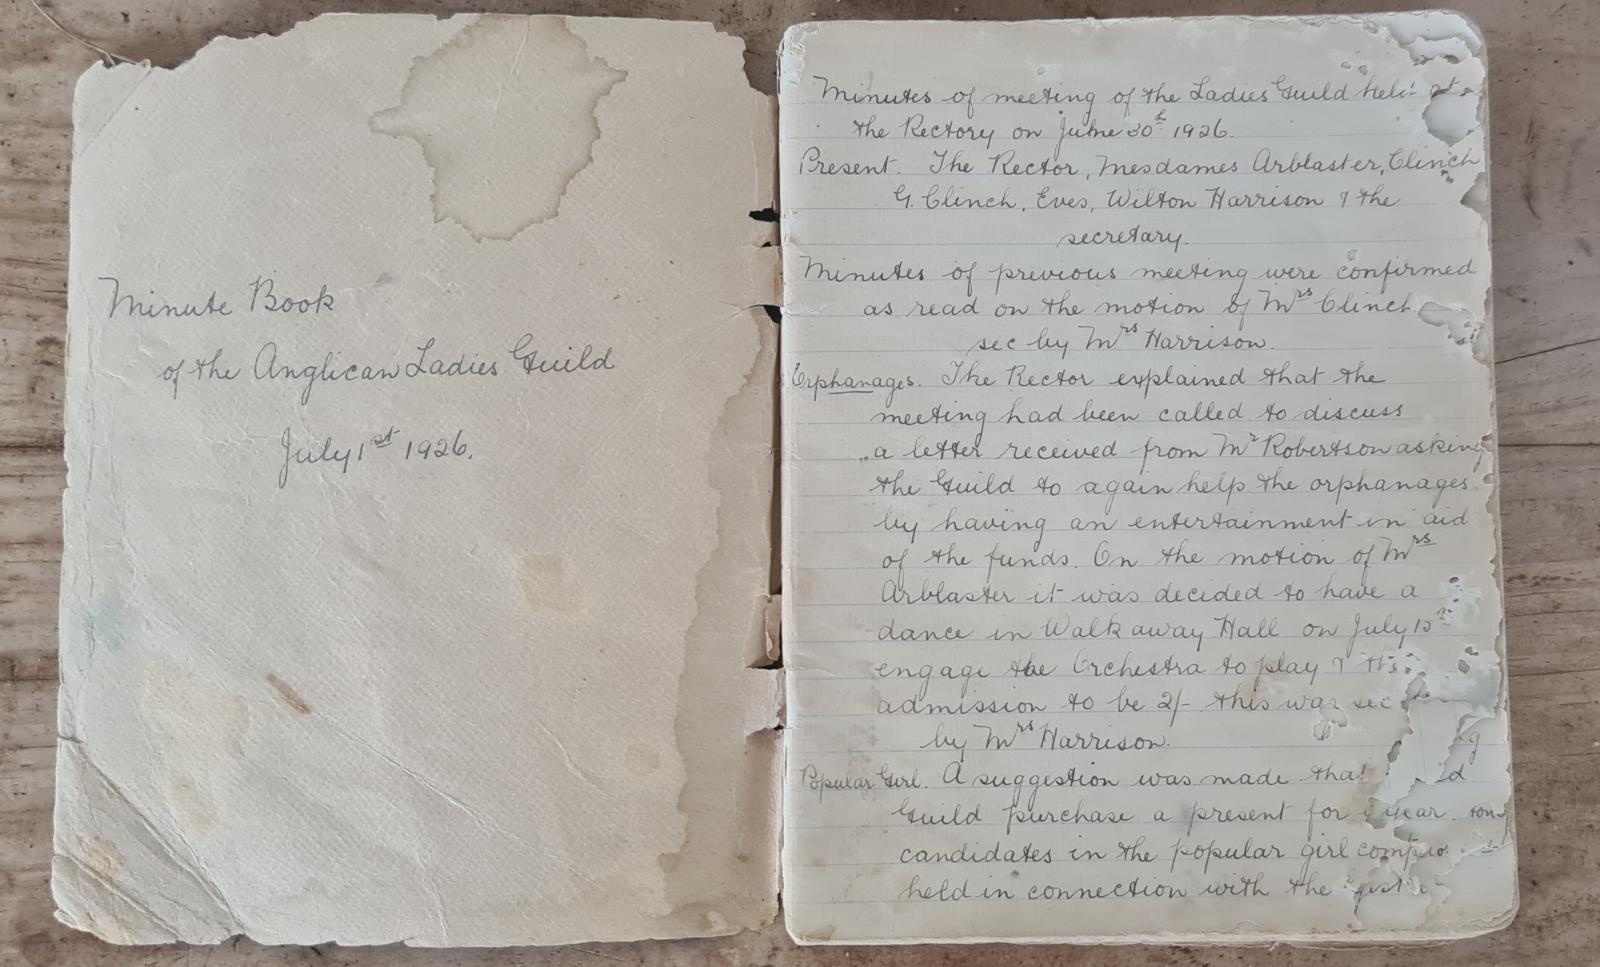 Minute Book
of the Anglican Ladies Guild
July 1st 1926.
Minutes of meeting of the Ladies Guild held at
the Rectory on June 30th 1926.
Present. The Rector, Mesdames Arblaster, Clinch
G. Clinch, Eves, Wilton Harrison & the
secretary.
Minutes of previous meeting were confirmed
as read on the motion of Mrs Clinch
sec by Mrs Harrison.
Orphanages. The Rector explained that the
meeting had been called to discuss
a letter received from Mr Robertson asking
the Guild to again help the orphanages
by having an entertainment in aid
of the funds. On the motion of Mrs
Arblaster it was decided to have a
dance in Walkaway Hall on July 15th
engage the Orchestra to play & the
admission to be 2/- this was sec
by Mrs Harrison.
Popular Girl. A suggestion was made that
Guild purchase a present for
candidates in the popular girl
held in connection with the